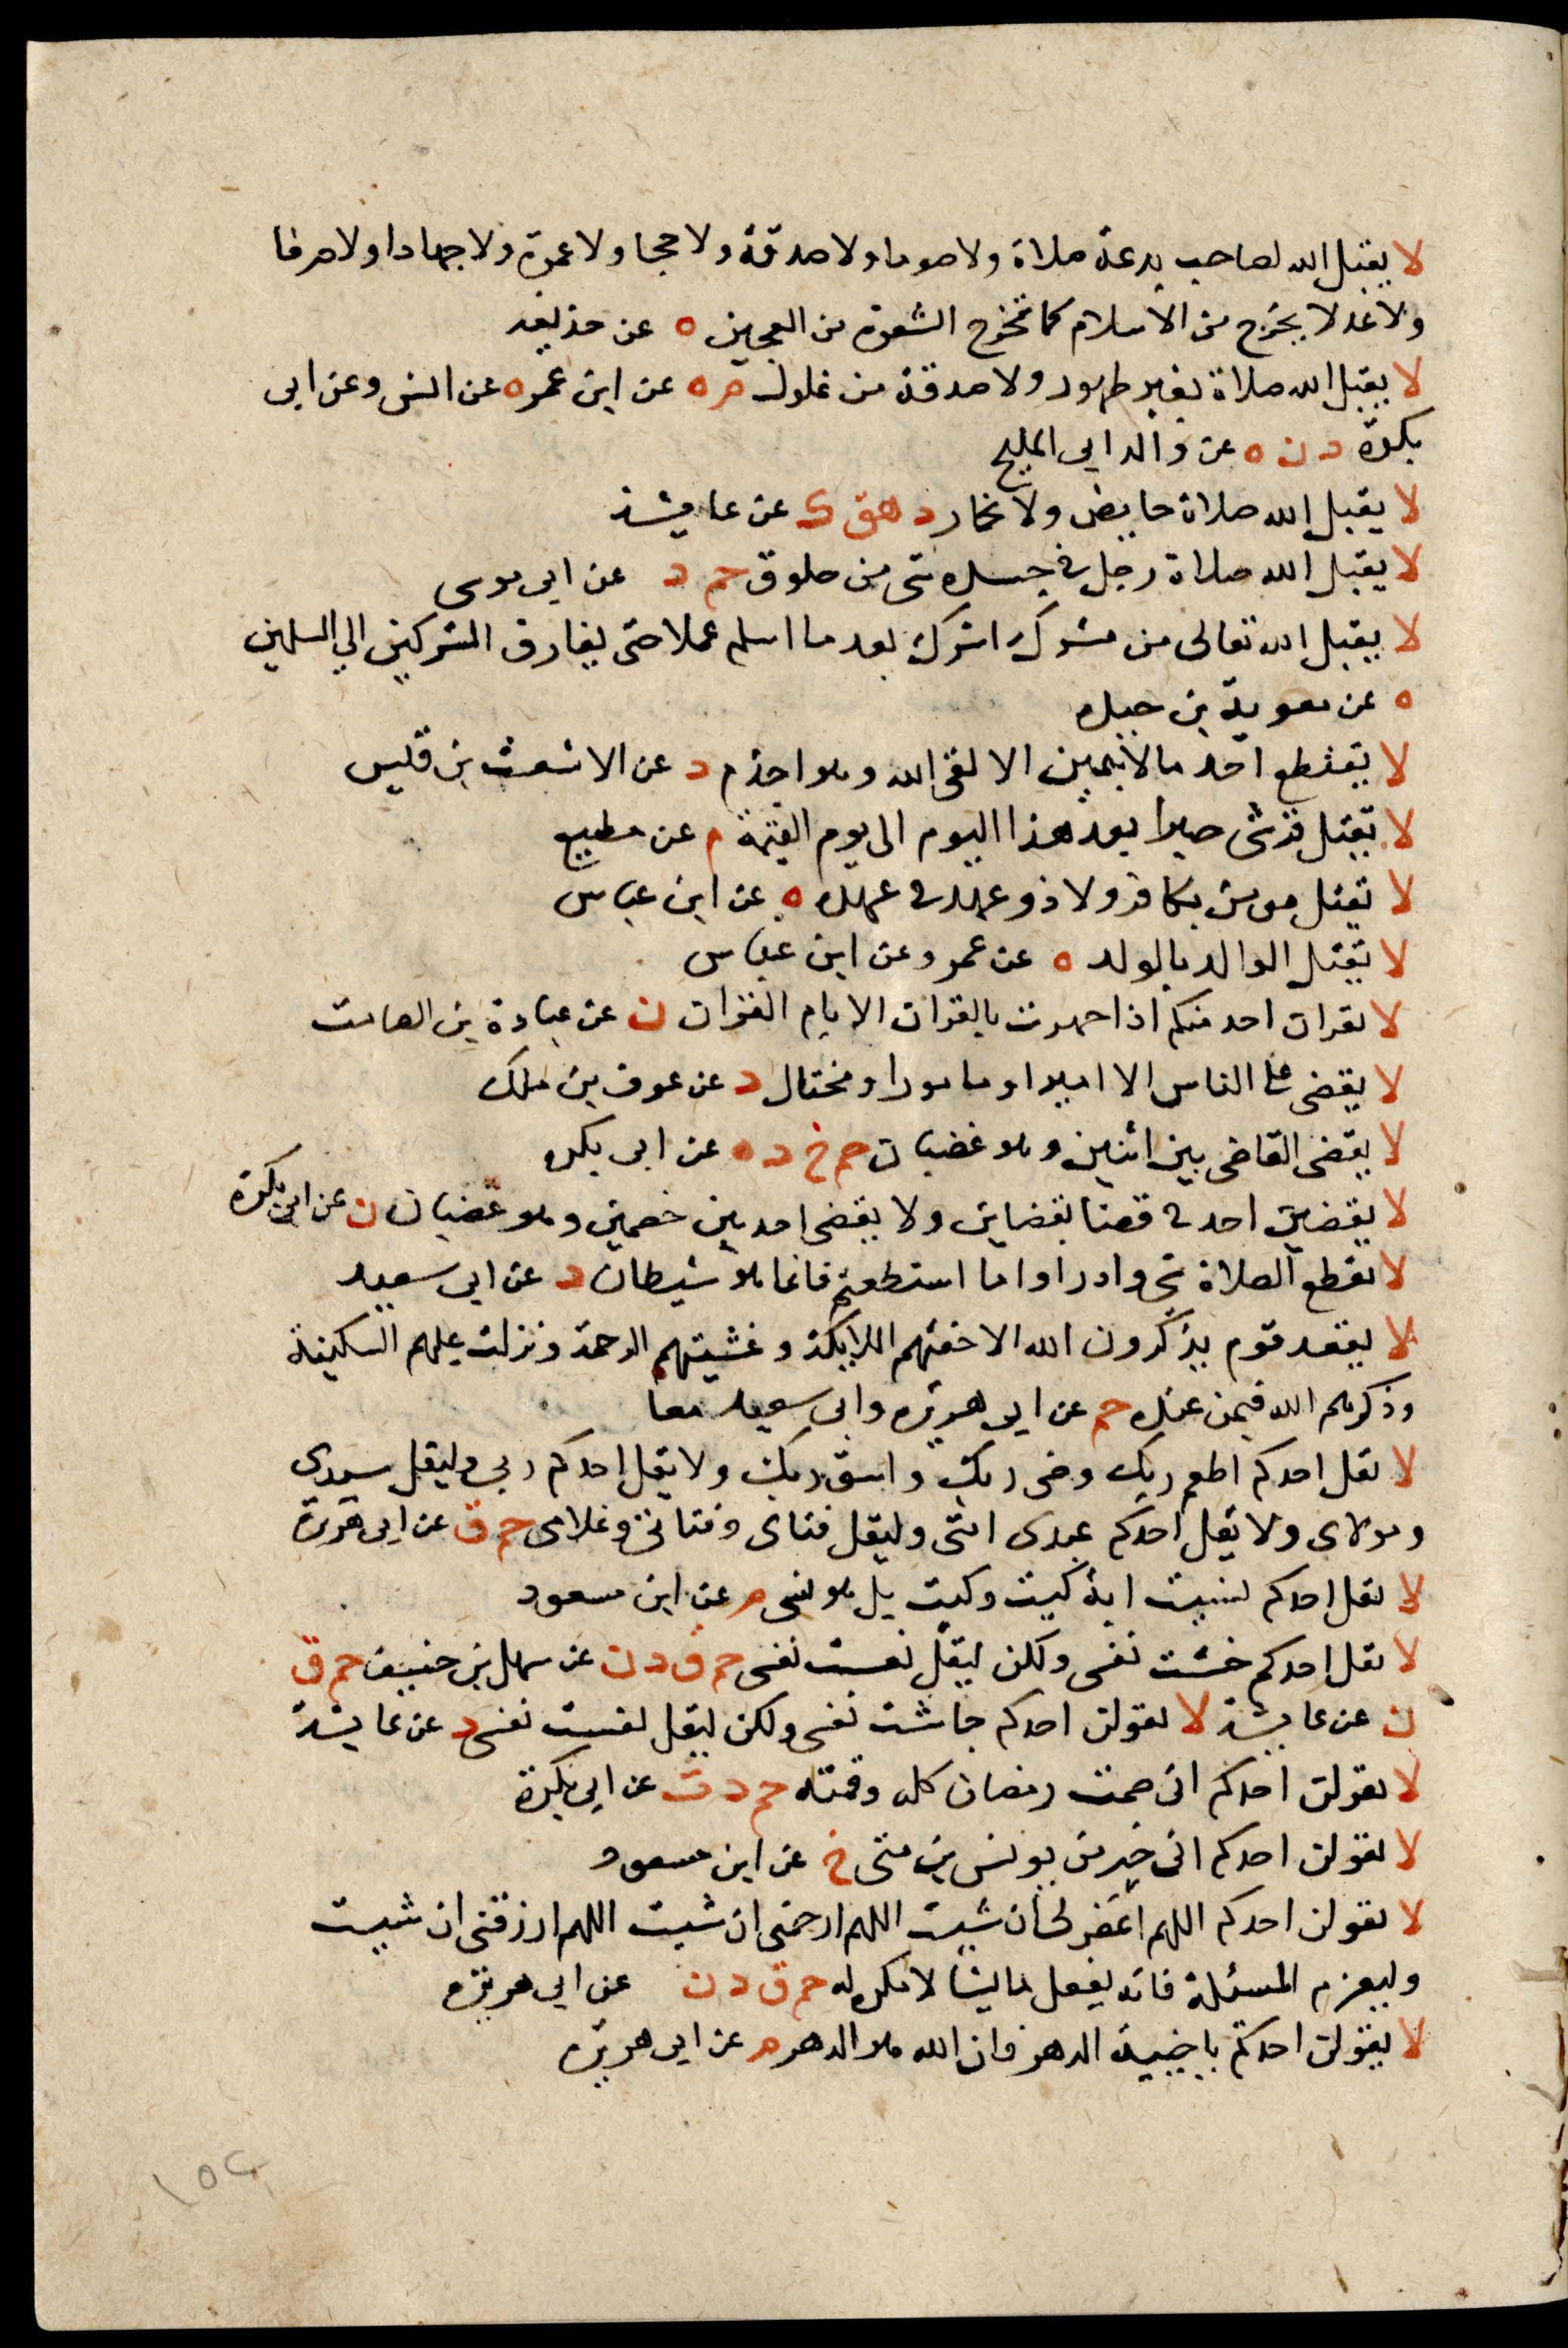 لا يقبل الله لصاحب بدعة صلاة ولا صوما ولا صدقة ولا حجا ولا عمرة ولا جهادا ولا صرفا
ولا عدلا يخرج من الاسلام كما تخرج الشعرة من العجين ه عن حذيفه
لا يقبل الله صلاة بغير طهور ولا صدقة من غلول م ه عن ابن عمر ه عن انس وعن ابى
بكرة د ن ه عن والد ابى المليح
لا يقبل الله صلاة حايض ولا بخمار د هق ك عن عايشة
لا يقبل الله صلاة رجل فى جسده شى من خلوق حم د عن ابى موسى
لا يقبل الله تعالى من مشرك اشرك بعد ما اسلم عملا حتى يفارق المشركين الى المسلمين
ه عن معوية بن حيده
لا يقتطع احد مالا بيمين الا لقى الله وهو اجذم د عن الاشعث بن قيس
لا يقتل قرشى صبرا بعد هذا اليوم الى يوم القيمة م عن مطيع
لا يقتل مومن بكافر ولا ذو عهد فى عهده ه عن ابن عباس
لا يقتل الوالد بالولد ه عن عمر وعن ابن عباس
لا يقران احد منكم اذا جهرت بالقران الا بام القران ن عن عبادة بن الصامت
لا يقضى على الناس الا امير او مامور او مختال د عن عوف بن ملك
لا يقضى القاضى بين اثنين وهو غضبان حم خ د ه عن ابى بكره
لا يقضين احد فى قضا بقضاين ولا يقضى احد بين خصمين وهو غضبان ن عن ابى بكرة
لا يقطع الصلاة شى وادراوا ما استطعتم فانما هو شيطان د عن ابى سعيد
لا يقعد قوم يذكرون الله الا حفتهم الملايكة وغشيتهم الرحمة ونزلت عليهم السكينة
وذكرهم الله فيمن عنده حم عن ابى هريره وابى سعيد معا
لا يقل احدكم اطعم ربك وضى ربك واسق ربك ولا يقل احدكم ربى وليقل سيدى
ومولاى ولا يقل احدكم عبدى امتى وليقل فتاى وفتاتى وغلامى حم ق عن ابى هريرة
لا يقل احدكم نسيت اية كيت وكيت بل هو نسى م عن ابن مسعود
لا يقل احدكم خبثت نفسى ولكن ليقل لقست نفسى حم ق د ن عن سهل بن حنيف حم ق
ن عن عايشة لا يقولن احدكم جاشت نفسى ولكن ليقل لقست نفسى د عن عايشة
لا يقولن احدكم انى صمت رمضان كله وقمته حم د ن عن ابى بكرة
لا يقولن احدكم انى خير من يونس بن متى خ عن ابن مسعود
لا يقولن احدكم اللهم اغفر لى ان شيت اللهم ارحمنى ان شيت اللهم ارزقنى ان شيت
وليعزم المسئلة فانه يفعل ما يشا لا مكره له حم ق د ن عن ابى هريره
لا يقولن احدكم يا خيبة الدهر فان الله هو الدهر م عن ابى هريره
١٥٢